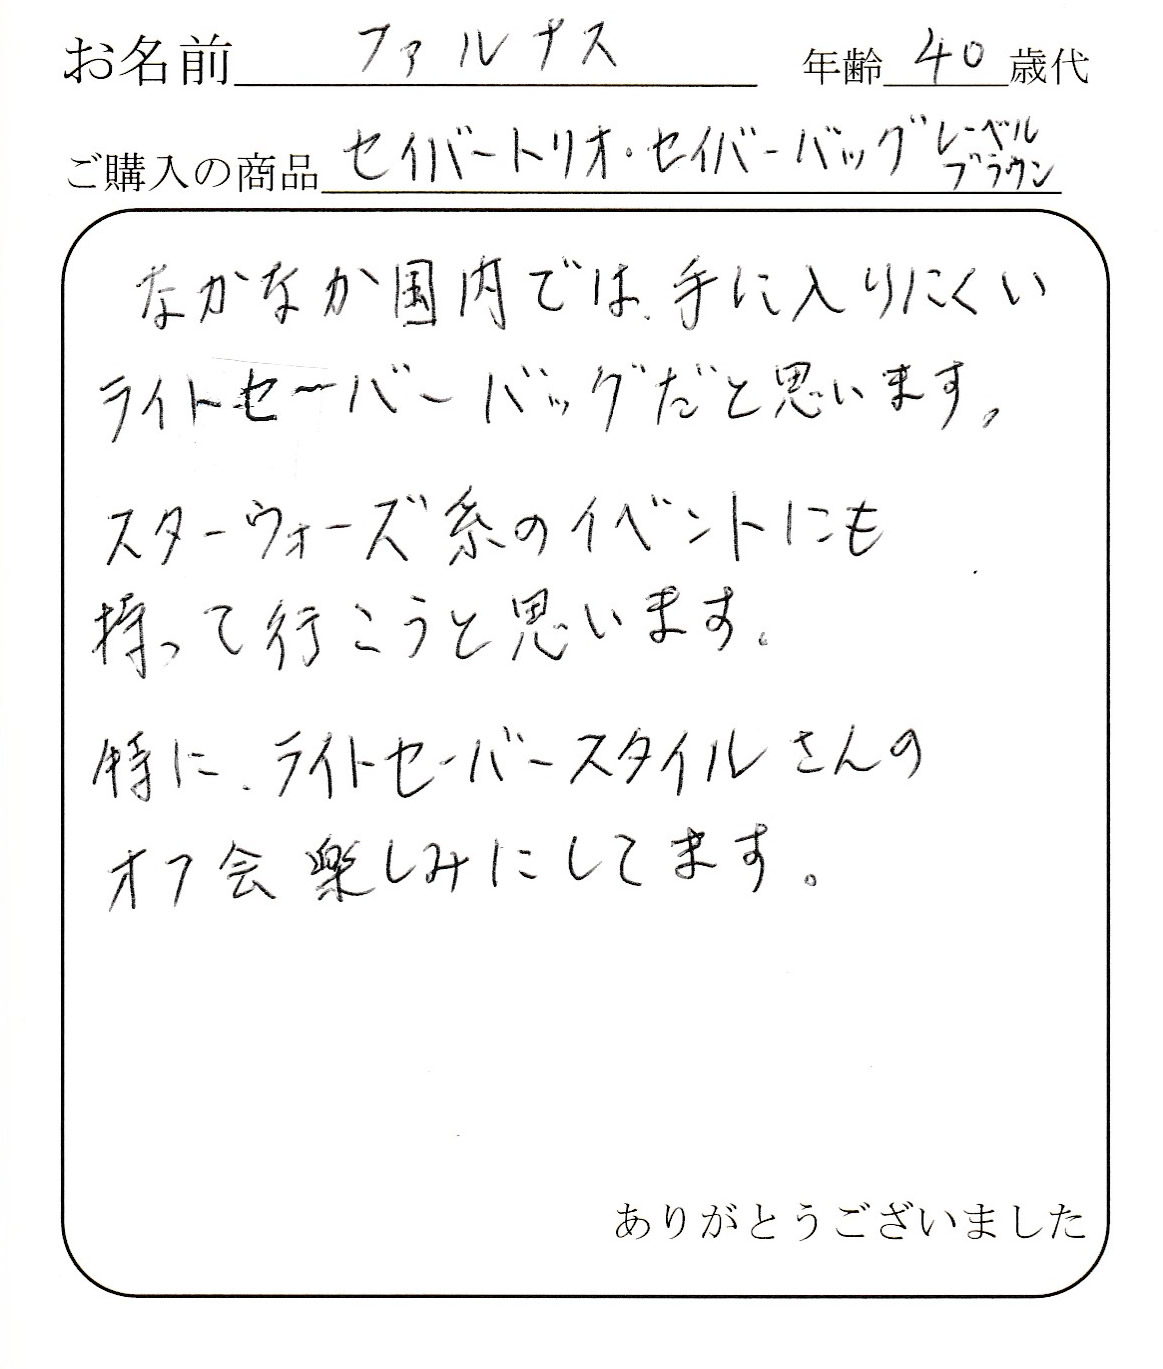 お名前 ファルナス 年齢 40 歳代
ご購入の商品 セイバートリオ・セイバーバッグ レーベルブラウン
なかなか国内では、手に入りにくい
ライトセーバーバッグだと思います。
スターウォーズ系のイベントにも
持って行こうと思います。
特に、ライトセーバースタイルさんの
オフ会楽しみにしてます。
ありがとうございました